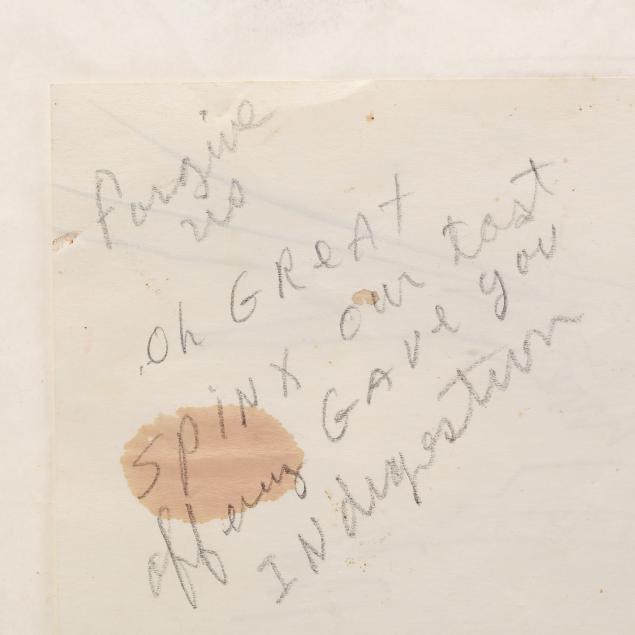 forgive
us
oh GReAt
SpiNX our last
offering GAve you
INdigestion